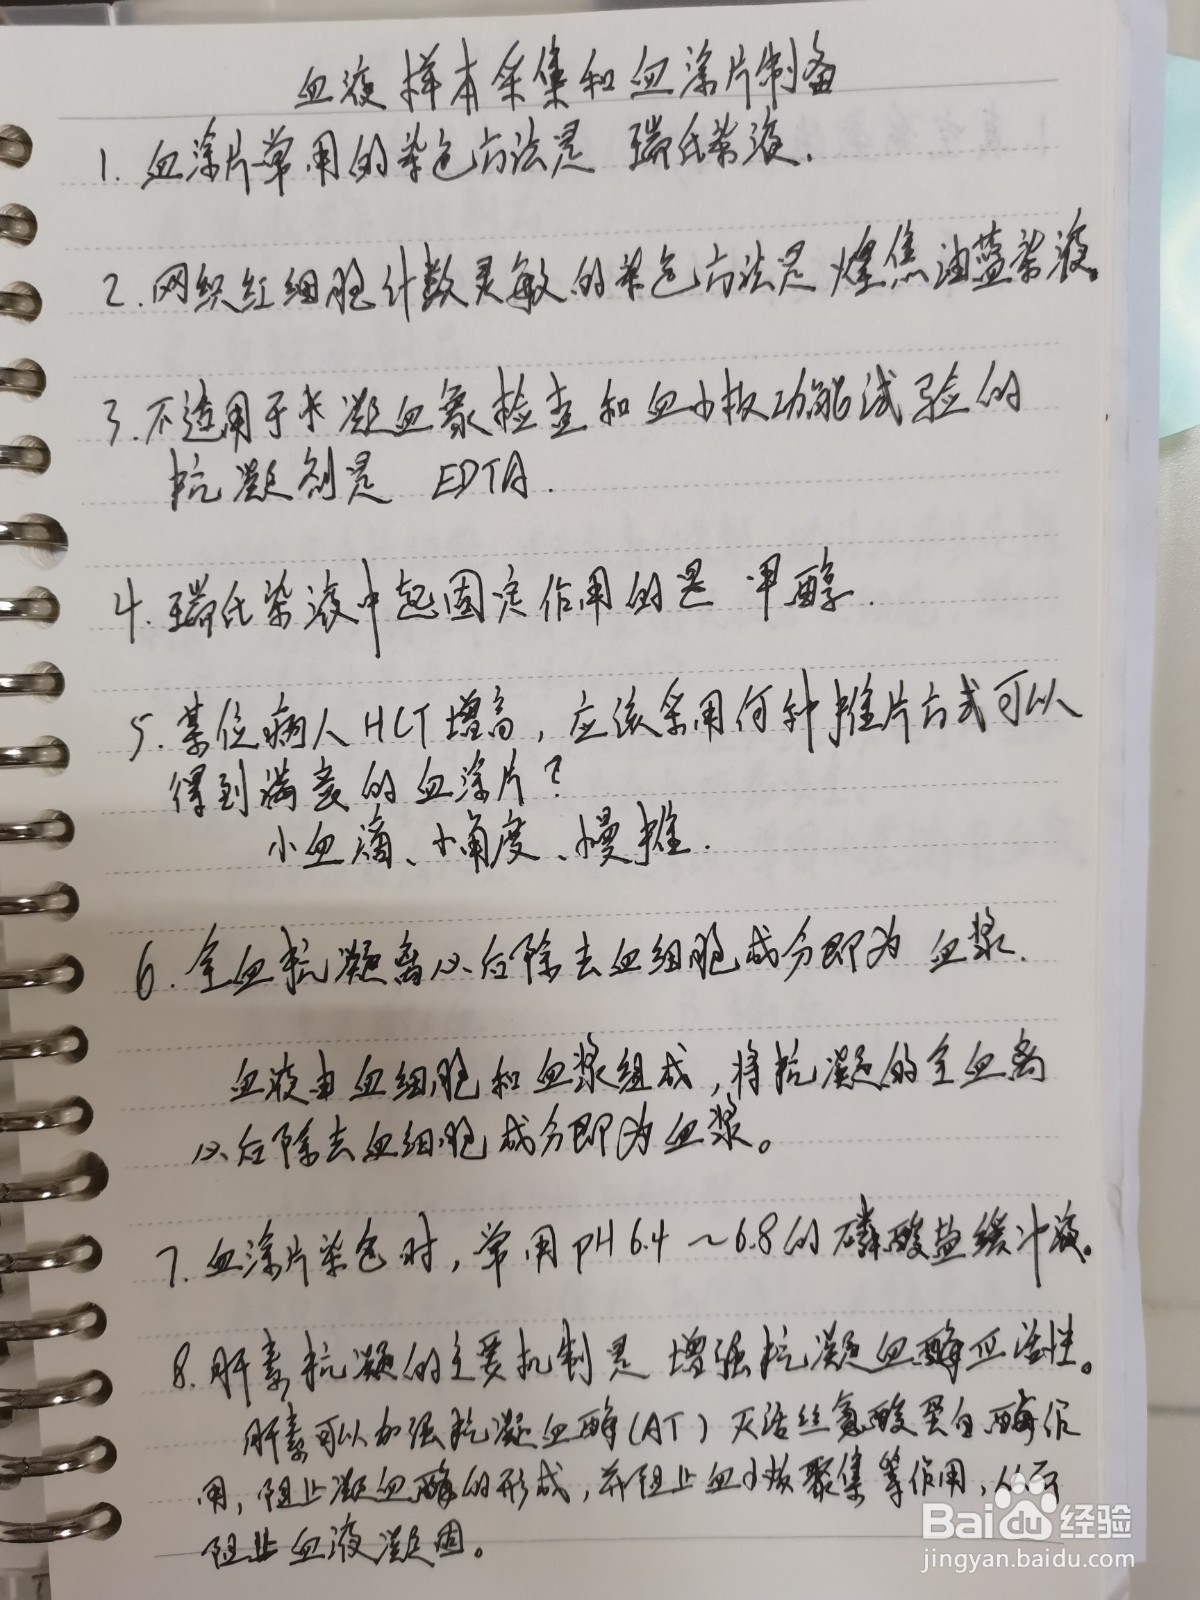 血液样本采集和血涂片制备
1. 血涂片常用的染色方法是 瑞氏染液.
2. 网织红细胞计数灵敏的染色方法是 煌焦油蓝染液。
3. 不适用于凝血象检查和血小板功能试验的
抗凝剂是 EDTA.
4. 瑞氏染液中起固定作用的是 甲醇.
5. 某位病人HCT增高, 应该采用何种推片方式可以
得到满意的血涂片?
小血滴、小角度、慢推.
6. 全血抗凝离心后除去血细胞成分即为 血浆.
血液由血细胞和血浆组成, 将抗凝的全血离
心后除去血细胞成分即为血浆。
7. 血涂片染色时, 常用pH6.4~6.8的磷酸盐缓冲液。
8. 肝素抗凝的主要机制是 增强抗凝血酶Ⅲ活性。
肝素可以加强抗凝血酶(AT) 灭活丝氨酸蛋白酶作
用, 阻止凝血酶的形成, 并阻止血小板聚集等作用, 从而
阻止血液凝固。
Baidu经验
jingyan.baidu.com